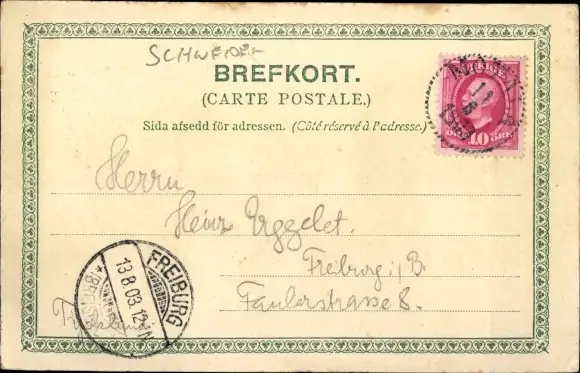 SCHWEDEN
BREFKORT.
(CARTE POSTALE.)
Sida afsedd för adressen. (Côté réservé à l'adresse.)
SVERIGE
10 ÖRE
Herrn
Heinr Eggelet.
Freiburg i/B.
Faulerstrasse 8.
FREIBURG
13.8.03.12-1N